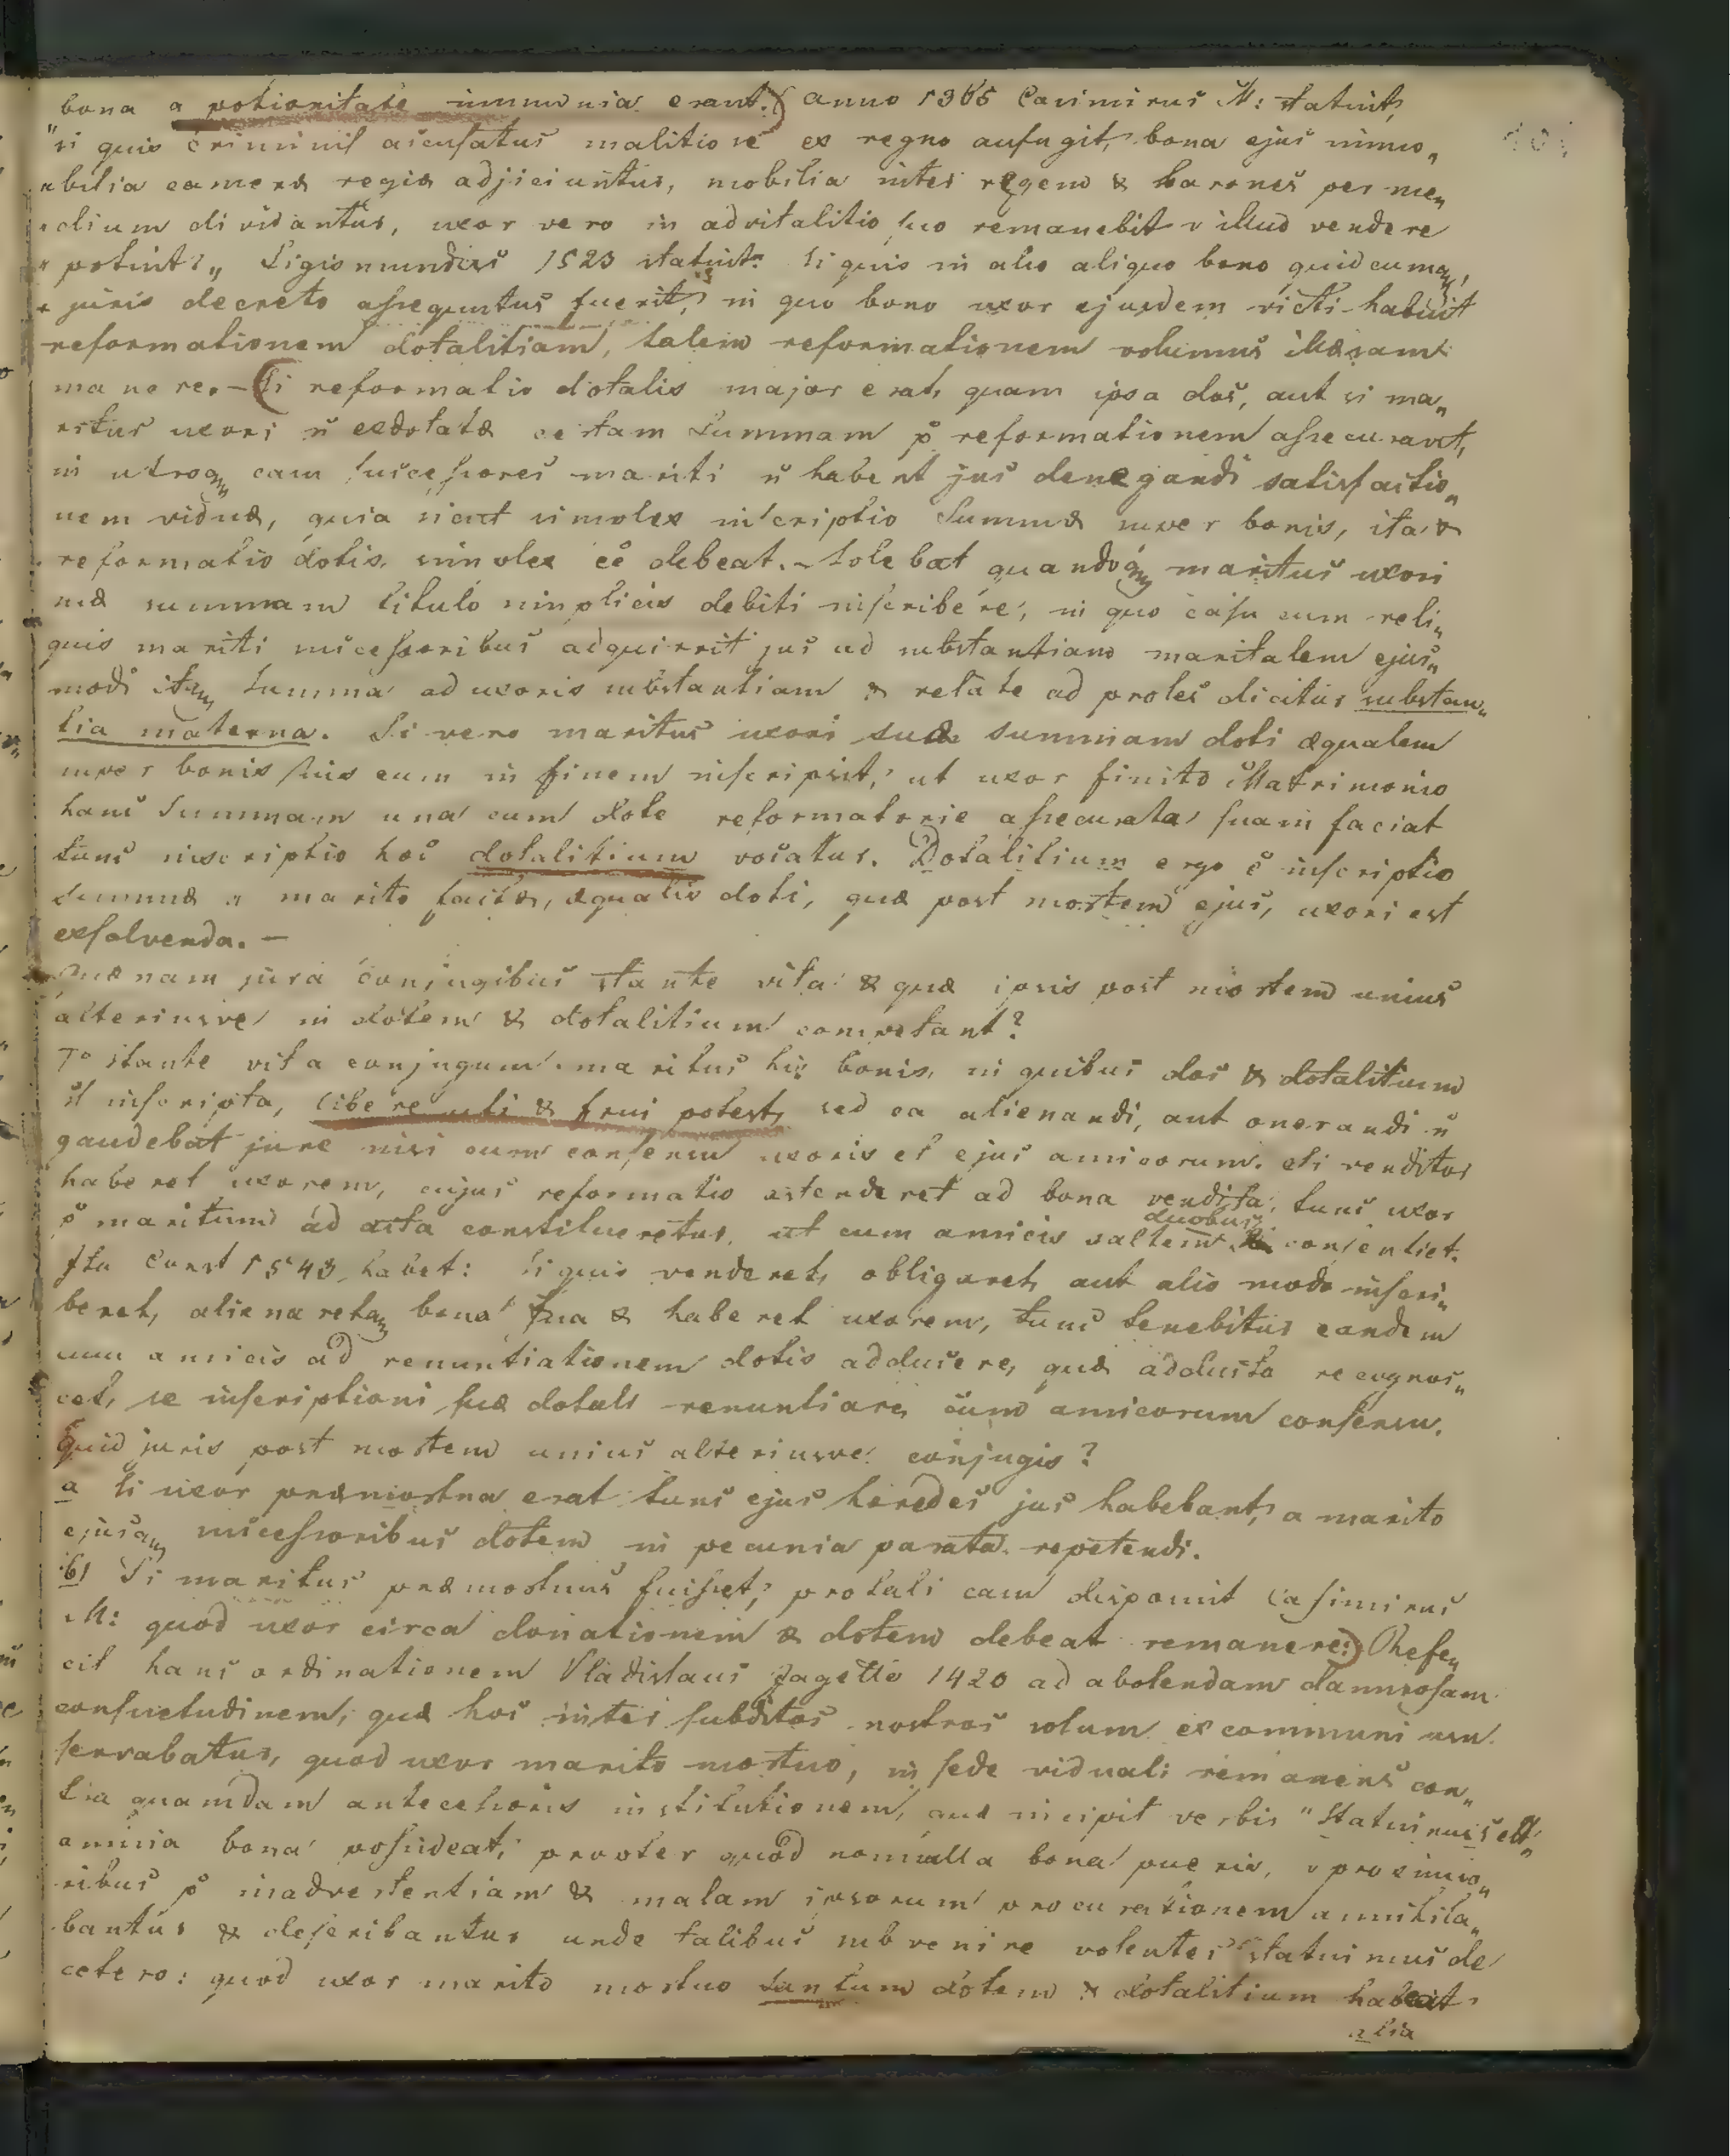 bona a potioritate immunia erant.) anno 1365 Casimirus M: statuit,
"si quis criminis accusatus malitiose ex regno aufugit, bona ejus immo„
„bilia cameræ regiæ adjiciuntur, mobilia inter regem & barones per me„
„dium dividantur, uxor vero in advitalitio suo remanebit v illud vendere
„potuit„ Sigismundus 1523 statuit: Si quis in alio aliquo bono quidcumq,
„juris decreto assequutus fuerit, in quo bono uxor ejusdem victi habuit
reformationem dotalitiam, talem reformationem volumus illæsam
manere. – (Si reformatio dotalis major erat, quam ipsa dos, aut si ma„
ritus uxori ñ exdotatæ certam summam p reformationem assecuravit,
in utroq casu successores mariti ñ habent jus denegandi satisfactio„
nem viduæ, quia sicut simplex inscriptio summæ super bonis, ita &
reformatio dotis simplex eē debeat. – Solebat quandoq maritus uxori
suæ summam titulo simplicis debiti inscribere, in quo casu cum reli„
quis mariti successoribus adquirit jus ad substantiam maritalem ejus„
modi itaq summa ad uxoris substantiam & relate ad proles dicitur substan„
tia materna. Si vero maritus uxori suæ summam doti æqualem
super bonis suis eum in finem inscripsit, ut uxor finito Matrimonio
hanc summam una cum dote reformatorie assecurata suam faciat
tunc inscriptio hoc dotalitium vocatur. Dotalitium ergo ē inscriptio
summæ a marito factæ, æqualis doti, quæ post mortem ejus, uxori est
exsolvenda. –
Quænam jura conjugibus stante vita & quæ ipsis post mortem unius
alteriusve in dotem & dotalitium competant?
1o stante vita conjugum maritus his bonis, in quibus dos & dotalitium
st inscripta, libere uti & frui potest, sed ea alienandi, aut onerandi ñ
gaudebat jure nisi cum consensu uxoris et ejus amicorum. Si venditor
haberet uxorem, cujus reformatio extenderet ad bona vendita, tunc uxor
p maritum ad acta constitueretur, ut cum amicis saltem duobus consentiet.
Ita Const 1543 habet: Si quis venderet, obligaret, aut alio modo inscri„
beret, alienaretq bona sua & haberet uxorem, tunc tenebitur eandem
cum amicis ad renuntiationem dotis adducere, quæ adducta recognos„
cet, se inscriptioni suæ dotali renuntiare, cum amicorum consensu.
Quid juris post mortem unius alteriusve conjugis?
a Si uxor præmortua erat tunc ejus heredes jus habebant, a marito
ejusq successoribus dotem in pecunia parata repetendi.
b) Si maritus præmortuus fuisset, pro tali casu disponit Casimirus
M: quod uxor circa donationem & dotem debeat remanere:) Refe„
cit hanc ordinationem Vladislaus Jagello 1420 ad abolendam damnosam
consuetudinem, quæ hoc inter subditos nostros solum ex communi usu
servabatur, quod uxor marito mortuo, in sede viduali remanens con„
tra quamdam antecessoris institutionem, quæ incipit verbis "Statuimus ett„
omnia bona possideat, propter quod nonnulla bona pueris, v proximio„
ribus p inadvertentiam & malam ipsorum procurationem annihila„
bantur & deseribantur unde talibus subvenire volentes statuimus de
cetero: quod uxor marito mortuo tantum dotem & dotalitium habeat,
alia